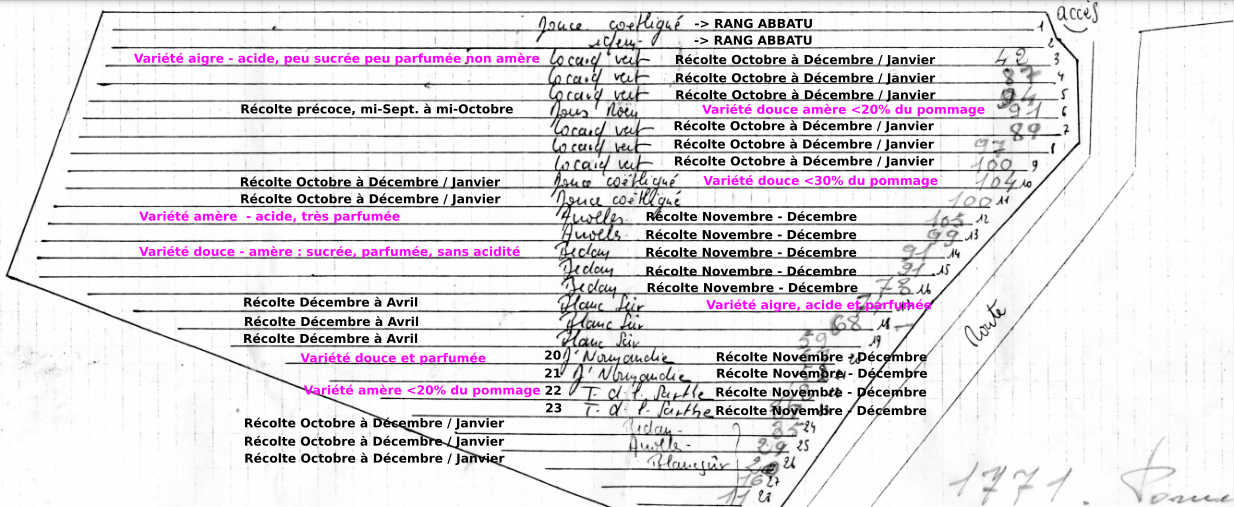 accès
Douce coëtligné -> RANG ABBATU 1
idem -> RANG ABBATU 2
Variété aigre - acide, peu sucrée peu parfumée non amère Locard vert Récolte Octobre à Décembre / Janvier 42 3
Locard vert Récolte Octobre à Décembre / Janvier 87 4
Locard vert Récolte Octobre à Décembre / Janvier 94 5
Récolte précoce, mi-Sept. à mi-Octobre Douce Variété douce amère <20% du pommage 91 6
Locard vert Récolte Octobre à Décembre / Janvier 89 7
Locard vert Récolte Octobre à Décembre / Janvier 97 8
Locard vert Récolte Octobre à Décembre / Janvier 100 9
Récolte Octobre à Décembre / Janvier Douce coëtligné Variété douce <30% du pommage 104 10
Récolte Octobre à Décembre / Janvier Douce coëtligné 100 11
Variété amère - acide, très parfumée Avrolles Récolte Novembre - Décembre 105 12
Avrolles Récolte Novembre - Décembre 99 13
Variété douce - amère : sucrée, parfumée, sans acidité Bedan Récolte Novembre - Décembre 91 14
Bedan Récolte Novembre - Décembre 91 15
Bedan Récolte Novembre - Décembre 78 16
Récolte Décembre à Avril Blanc Sûr Variété aigre, acide et parfumée 17
Récolte Décembre à Avril Blanc Sûr 68 18
Récolte Décembre à Avril Blanc Sûr 59 19
Variété douce et parfumée 20 Normandie Récolte Novembre - Décembre
21 Normandie Récolte Novembre - Décembre
Variété amère <20% du pommage 22 T. d. l. Sarthe Récolte Novembre - Décembre
23 T. d. l. Sarthe Récolte Novembre - Décembre
Récolte Octobre à Décembre / Janvier Bedan 35 24
Récolte Octobre à Décembre / Janvier Avrolles 29 25
Récolte Octobre à Décembre / Janvier Blanc sûr 26
16 27
11 28
Route
1771. Pomm